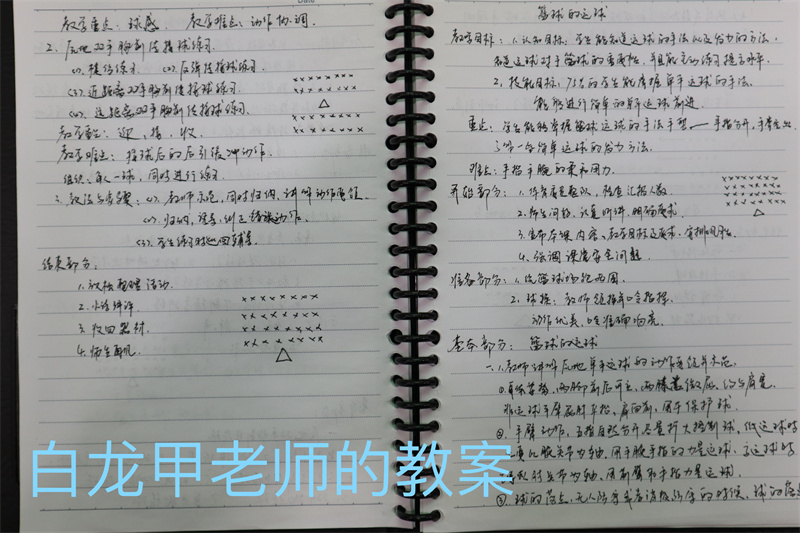 教学重点：球感 教学难点：动作协调
2、原地双手胸前传接球练习
(1) 模仿练习 (2) 反弹传接球练习
(3) 近距离双手胸前传接球练习
(4) 远距离双手胸前传接球练习
教学重点：迎、接、收
教学难点：接球后的后引缓冲动作
组织：每人一球，同时进行练习
3、教法与步骤：(1) 教师示范，同时归纳，讲解动作要领
(2) 归纳，语言，纠正错误动作
(3) 学生练习时巡回辅导
结束部分：
1、放松整理活动
2、小结讲评
3、收回器材
4、师生再见
篮球的运球
教学目标：1、认知目标：学生能知道运球的手法以及发力的方法，
知道运球对于篮球的重要性，并能主动练习提高水平
2、技能目标：75%的学生能掌握单手运球的手法
能够进行简单的单手运球前进
重点：学生能够掌握篮球运球的手法手型——手指分开，手掌空出
了解一些简单运球的发力方法
难点：手指手腕的柔和用力
开始部分：1、体育委员整队，检查汇报人数
2、师生问好，认真听讲，明确要求
3、宣布本课内容、教学目标及要求，安排见习生
4、强调课堂安全问题
准备部分：1、绕篮球场跑两圈
2、球操：教师领操并哨指挥
动作优美，哨准确响亮
基本部分：篮球的运球
一、1、教师讲解原地单手运球的动作要领并示范
①身体姿势，两脚前后开立，两膝微屈，
非运球手臂屈肘平抬，肩向前，用于保护球
②手臂动作，五指自然分开尽量扩大控制球，低运球时
主要以腕关节为轴，用手腕手指的力量运球，高运球时
以肘关节为轴，用前臂和手指力量运球
③球的落点，无人防守或者消极防守的时候，球的落点
白龙甲老师的教案